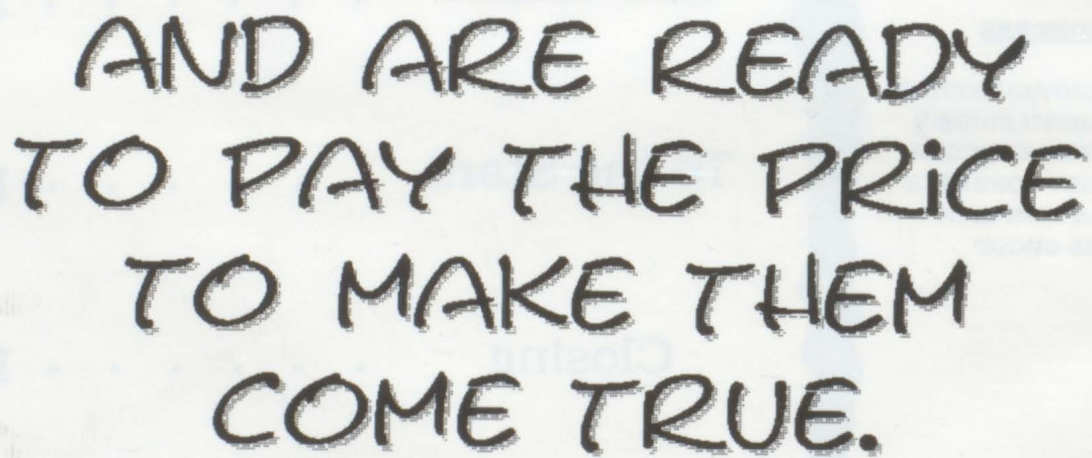 AND ARE READY
TO PAY THE PRiCE
TO MAKE THEM
COME TRUE.
Closing